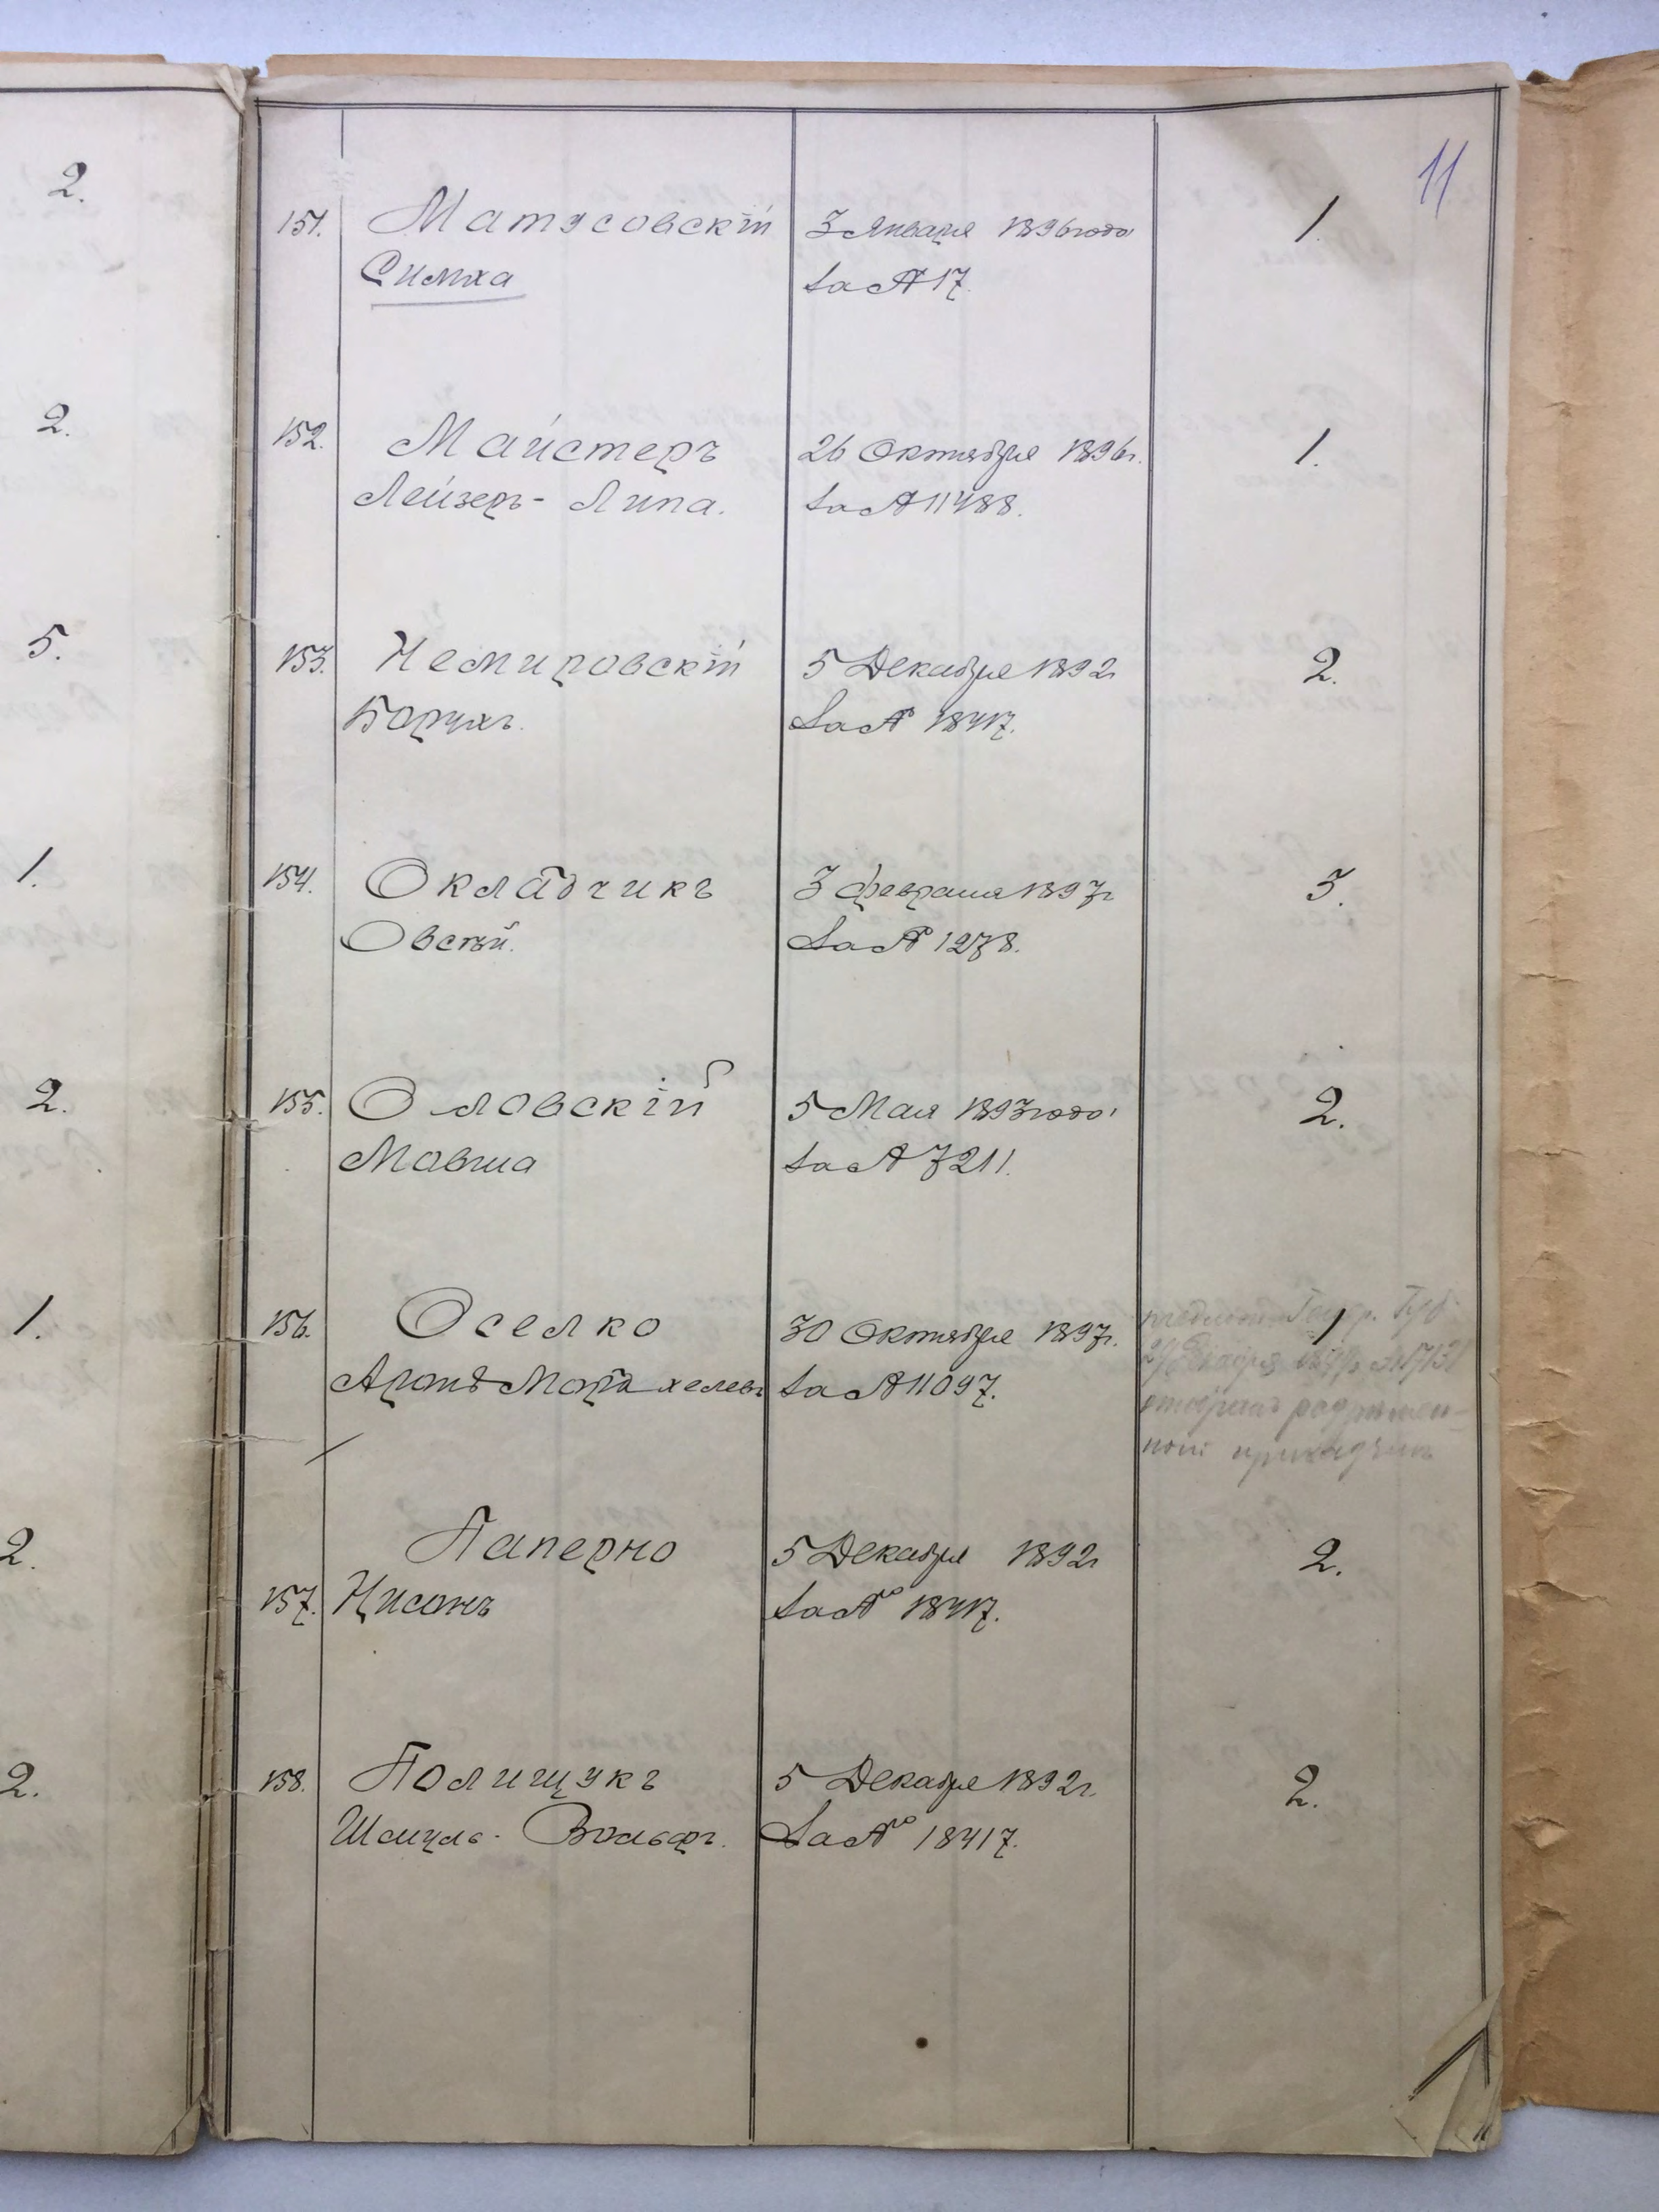 11
2.
151. Матусовскій 3 Января 1896 года 1.
Симха за № 17.
2.
152. Майстеръ 26 Октября 1896 г. 1.
Лейзеръ-Липа. за № 11488.
5.
153. Немировскій 5 Декабря 1892 г. 2.
Борухъ. За № 18417.
1.
154. Окладчикъ 3 Февраля 1897 г. 3.
Овсѣй. За № 1278.
2.
155. Оловскій 5 Мая 1893 года 2.
Мовша за № 7211.
1.
156. Оселко 30 Октября 1897 г. 1
Аронъ за № 11097.
2.
Паперно 5 Декабря 1892 г. 2.
157. Нисонъ за № 18417.
2.
158. Полищукъ 5 Декабря 1892 г. 2.
Шмуль-Вольфъ. За № 18417.